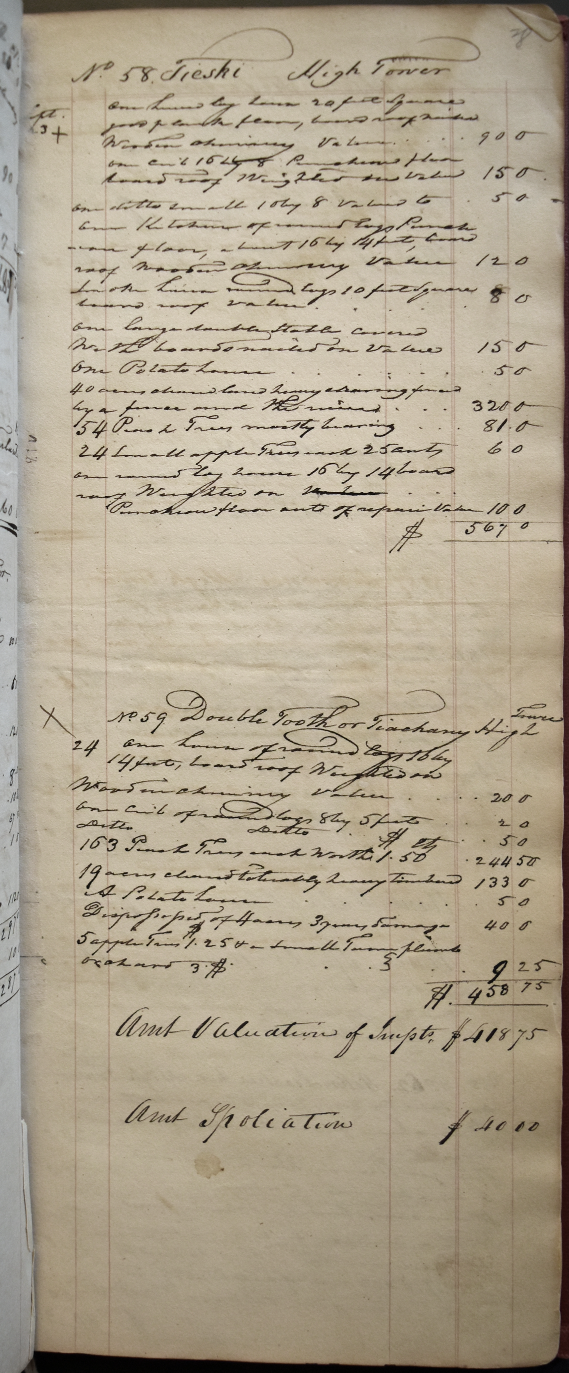 No 58 Tieski High Tower
Sept. 23 + one hewed log house 20 feet square
good plank floor, board roof nailed
Wooden chimney Value . . . . 90 0
one crib 16 by 8 Puncheon floor
board roof Weighted on Value 15 0
one ditto small 10 by 8 Valued to . 5 0
one Kitchen of round logs Punch
-eon floor, about 16 by 14 feet, board
roof Wooden chimney Value 12 0
Smoke house round logs 10 feet square
board roof Value . . . . 8 0
one large double Stable covered
With boards nailed on Value 15 0
One Potato house . . . . . 5 0
40 acres cleared land heavy clearing fenced
by a fence and the river . . . 320 0
54 Peach Trees mostly bearing . . . 81. 0
24 Small apple Trees each 25 cents 6 0
one round log house 16 by 14 board
roof Weighted on Value . . .
Puncheon floor outs of repair Value 10 0
$ 567 0
X No 59 Double Tooth or Tiachany High Tower
24 one house of round logs 16 by
14 feet, board roof Weighted on
Wooden chimney Value . . . . 20 0
one crib of round logs 8 by 5 feet 2 0
Ditto Ditto . 5 0
163 Peach Trees each Worth $1.50 . 244 50
19 acres cleared tolerably heavy timbered 133 0
A Potato house . . . . . 5 0
Dispossessed of 4 acres 3 years damage 40 0
5 apple Trees $1.25 & a small Plumb
orchard 3.$ . . . 9 25
$. 458 75
Amt Valuation of Impts. $ 418 75
Amt Spoliation $ 40 00